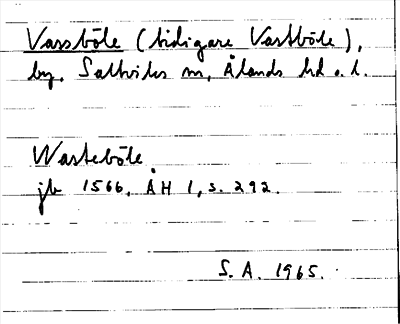 Vassböle (tidigare Vastböle),
by, Saltviks sn, Ålands hd o. l.
Wasteböle
jb 1566, ÅH 1, s. 292.
S. A. 1965.